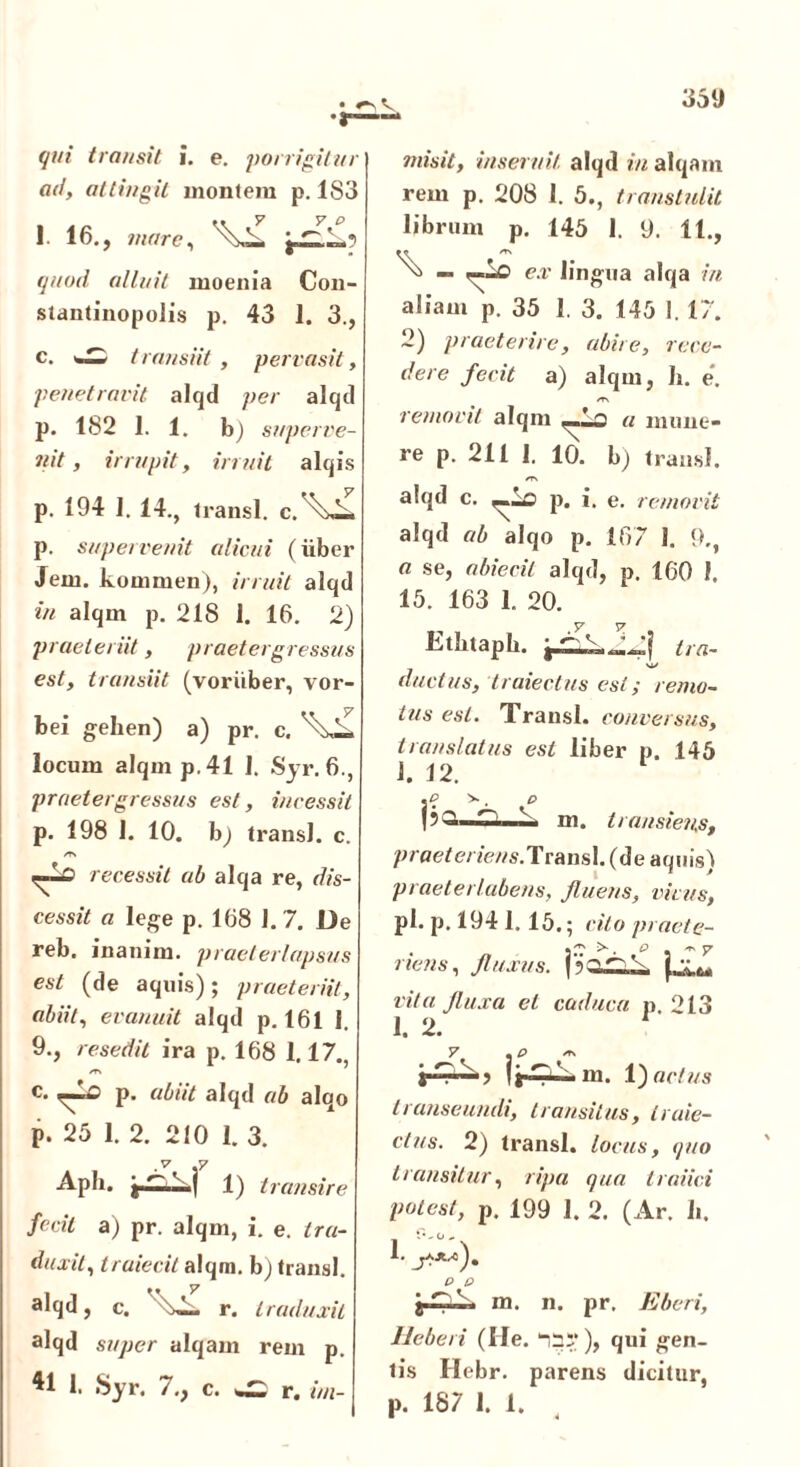 ܥܒܪ
359
qui transit i. e. porrigitur
ad, attingit montem p. 183
l. 16., mare, ܥܠ ܕܥܒܪ
quod alluit moenia Con-
stantinopolis p. 43 l. 3.,
c. ܒ transiit , pervasit,
penetravit alqd per alqd
p. 182 l. 1. b) superve-
nit , irrupit, irruit alqis
p. 194 l. 14., transl. c. ܥܠ
p. supervenit alicui (über
Jem. kommen), irruit alqd
in alqm p. 218 l. 16. 2)
praeteriit, praetergressus
est, transiit (vorüber, vor-
bei gehen) a) pr. c. ܥܠ
locum alqm p. 41 l. Syr. 6.,
praetergressus est, incessit
p. 198 l. 10. b) transl. c.
ܡܢ recessit ab alqa re, dis-
cessit a lege p. 168 l. 7. De
reb. inanim. praeterlapsus
est (de aquis); praeteriit,
abiit, evanuit alqd p. 161 l.
9., resedit ira p. 168 l. 17.,
c. ܡܢ p. abiit alqd ab alqo
p. 25 l. 2. 210 l. 3.
Aph. ܐܥܒܪ 1) transire
fecit a) pr. alqm, i. e. tra-
duxit, traiecit alqm. b) transl.
alqd, c. ܥܠ r. traduxit
alqd super alqam rem p.
41 l. Syr. 7., c. ܒ r. im-
misit, inseruit alqd in alqam
rem p. 208 l. 5., transtulit
librum p. 145 l. 9. 11.,
ܠ – ܡܢ ex lingua alqa in
aliam p. 35 l. 3. 145 l. 17.
2) praeterire, abire, rece-
dere fecit a) alqm, h. e.
removit alqm ܡܢ a mune-
re p. 211 l. 10. b) transl.
alqd c. ܡܢ p. i. e. removit
alqd ab alqo p. 167 l. 9.,
a se, abiecit alqd, p. 160 l.
15. 163 l. 20.
Ethtaph. ܐܬܬܥܒܪ tra-
ductus, traiectus est; remo-
tus est. Transl. conversus,
translatus est liber p. 145
l. 12.
ܥܒܘܪܐ m. transiens,
praeteriens. Transl. (de aquis)
praeterlabens, fluens, vivus,
pl. p. 194 l. 15.; cito praete-
riens, fluxus. ܚܝܐ ܥܒܘܪܐ
vita fluxa et caduca p. 213
l. 2.
ܥܒܪ, ܥܒܪܐ m. 1) actus
transeundi, transitus, traie-
ctus. 2) transl. locus, quo
transitur, ripa qua traiici
potest, p. 199 l. 2. (Ar. h.
l. معبر).
ܥܒܪ m. n. pr. Eberi,
Heberi (He. עבר), qui gen-
tis Hebr. parens dicitur,
p. 187 l. 1.